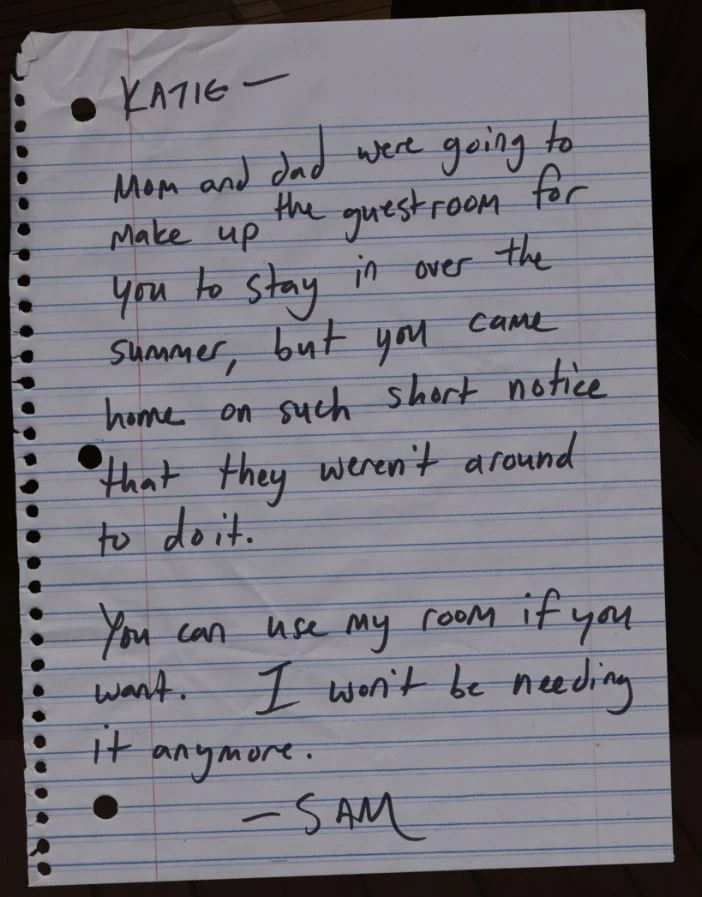 KATIE —
Mom and dad were going to
make up the guestroom for
you to stay in over the
summer, but you came
home on such short notice
that they weren't around
to do it.
You can use my room if you
want. I won't be needing
it anymore.
— SAM